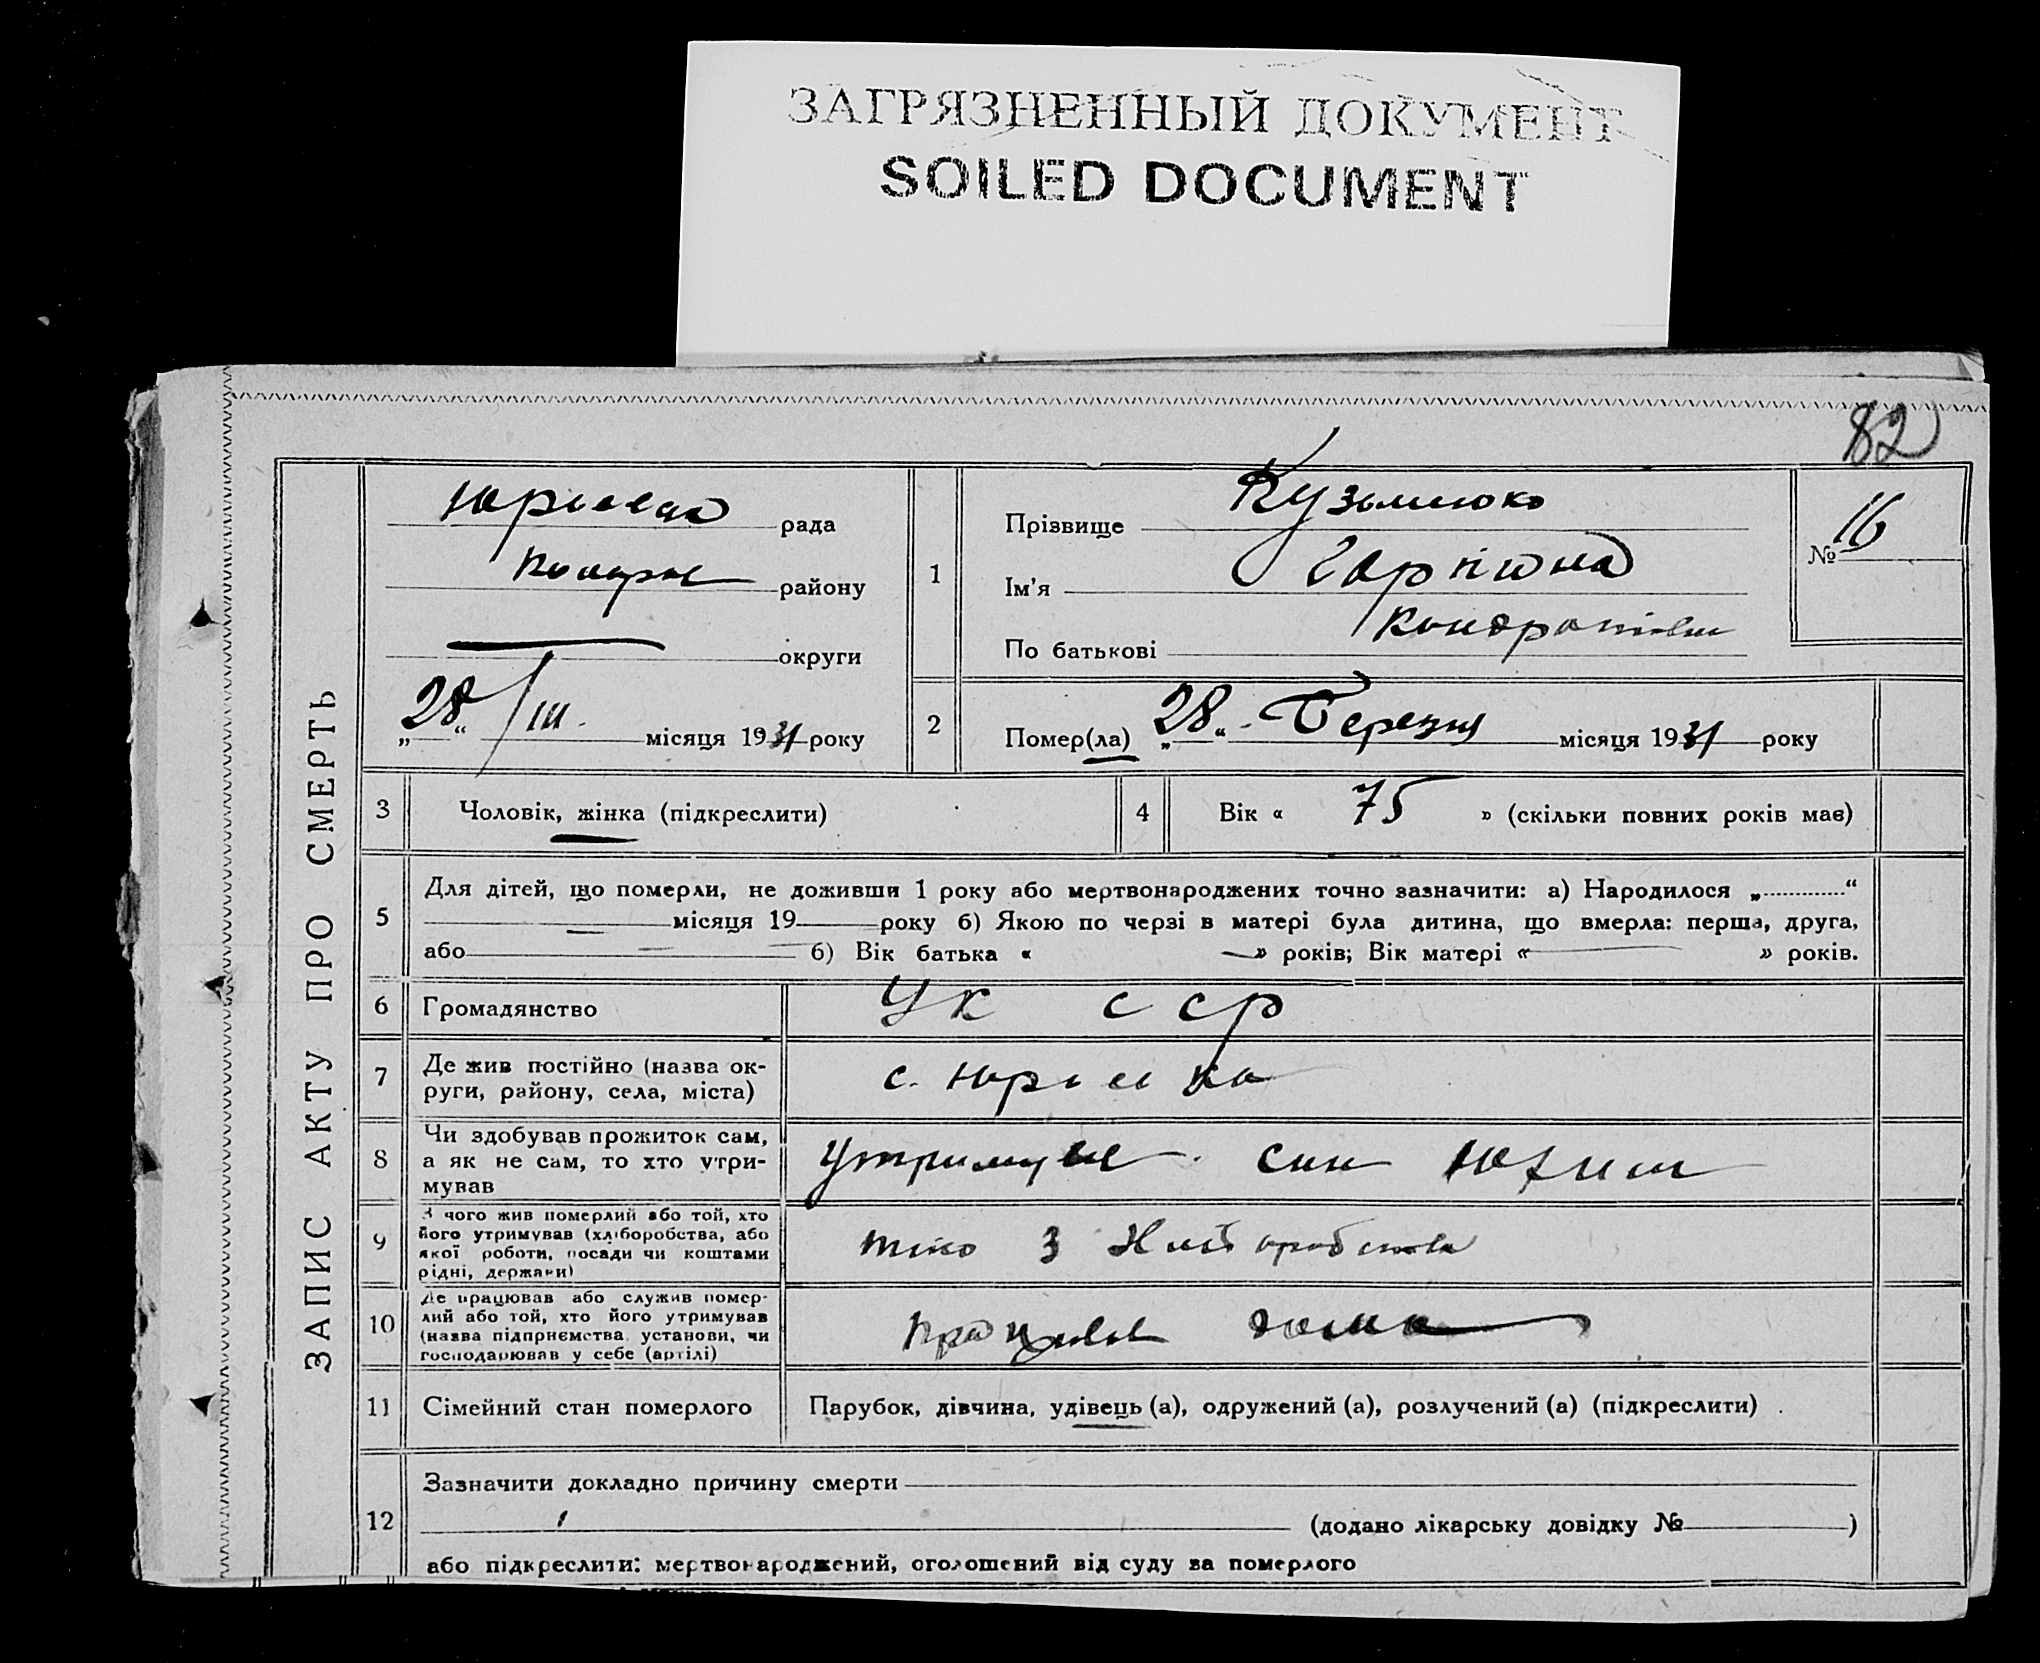 ЗАГРЯЗНЕННЫЙ ДОКУМЕНТ
SOILED DOCUMENT
82
ЗАПИС АКТУ ПРО СМЕРТЬ
рада
району
округи
28 / III. місяця 1931 року
1
Прізвище
Ім'я Гарпина
По батькові
№ 16
2
Помер(ла) „28“ Березня місяця 1931 року
3 Чоловік, жінка (підкреслити)
4 Вік « 75 » (скільки повних років має)
5
Для дітей, що померли, не доживши 1 року або мертвонароджених точно зазначити: а) Народилося „ “
місяця 19 року б) Якою по черзі в матері була дитина, що вмерла: перша, друга,
або б) Вік батька « » років; Вік матері « » років.
6 Громадянство УК ССР
7
Де жив постійно (назва ок-
руги, району, села, міста)
с. Юрківка
8
Чи здобував прожиток сам,
а як не сам, то хто утри-
мував
утримував син Юхим
9
З чого жив померлий або той, хто
його утримував (хліборобства, або
якої роботи, посади чи коштами
рідні, держави)
з Хліборобства
10
Де працював або служив помер-
лий або той, хто його утримував
(назва підприємства, установи, чи
господарював у себе (артілі)
працював дома
11 Сімейний стан померлого
Парубок, дівчина, удівець (а), одружений (а), розлучений (а) (підкреслити)
12
Зазначити докладно причину смерти
(додано лікарську довідку № )
або підкреслити: мертвонароджений, оголошений від суду за померлого